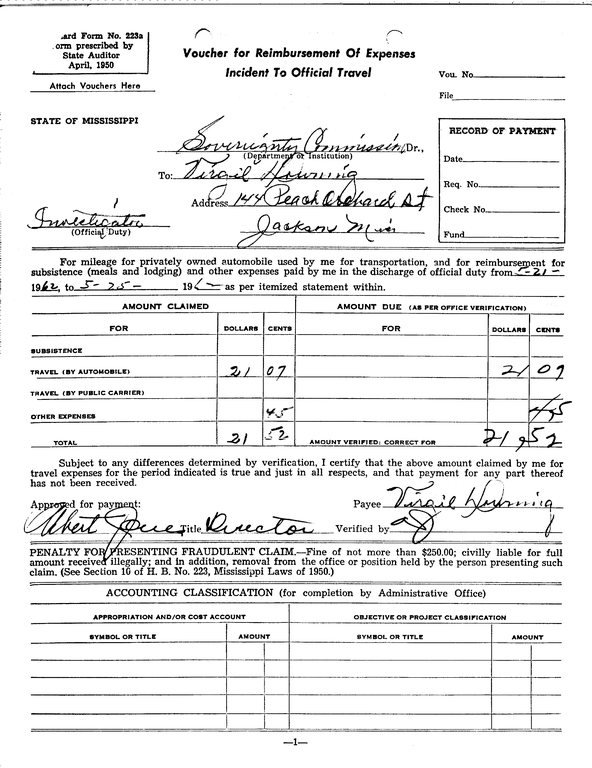 ard Form No. 223a
orm prescribed by
State Auditor
April, 1950
Attach Vouchers Here
Voucher for Reimbursement Of Expenses
Incident To Official Travel
Vou. No.
File
STATE OF MISSISSIPPI
Sovereignty Commission Dr.,
(Department or Institution)
To: Virgil Downing
Address 144 Peach Orchard St
Jackson Miss
Investigator
(Official Duty)
RECORD OF PAYMENT
Date
Req. No.
Check No.
Fund
For mileage for privately owned automobile used by me for transportation, and for reimbursement for
subsistence (meals and lodging) and other expenses paid by me in the discharge of official duty from 5-21-
1962, to 5-25- 196 as per itemized statement within.
AMOUNT CLAIMED AMOUNT DUE (AS PER OFFICE VERIFICATION)
FOR DOLLARS CENTS FOR DOLLARS CENTS
SUBSISTENCE
TRAVEL (BY AUTOMOBILE) 21 07 21 07
TRAVEL (BY PUBLIC CARRIER)
OTHER EXPENSES 45 45
TOTAL 21 52 AMOUNT VERIFIED; CORRECT FOR 21 52
Subject to any differences determined by verification, I certify that the above amount claimed by me for
travel expenses for the period indicated is true and just in all respects, and that payment for any part thereof
has not been received.
Approved for payment: Payee Virgil Downing
Albert Jones Title Director Verified by
PENALTY FOR PRESENTING FRAUDULENT CLAIM.—Fine of not more than $250.00; civilly liable for full
amount received illegally; and in addition, removal from the office or position held by the person presenting such
claim. (See Section 16 of H. B. No. 223, Mississippi Laws of 1950.)
ACCOUNTING CLASSIFICATION (for completion by Administrative Office)
APPROPRIATION AND/OR COST ACCOUNT OBJECTIVE OR PROJECT CLASSIFICATION
SYMBOL OR TITLE AMOUNT SYMBOL OR TITLE AMOUNT
—1—